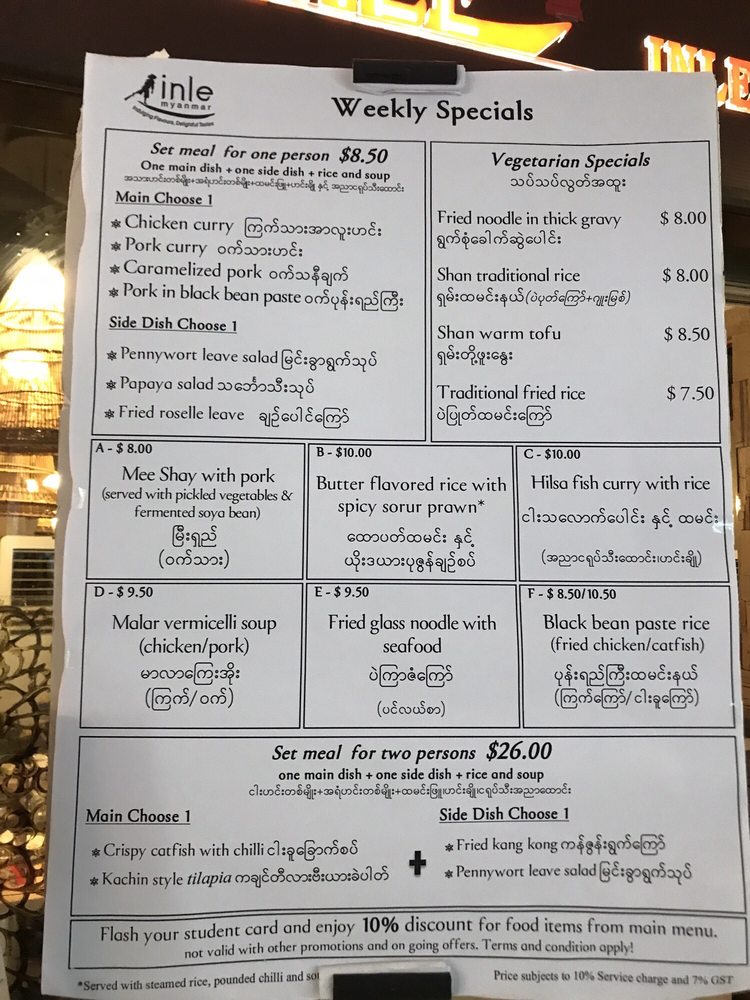 INLE
inle
myanmar
Weekly Specials
Set meal for one person $8.50
One main dish + one side dish + rice and soup
အသားဟင်းတစ်မျိုး+အရံဟင်းတစ်မျိုး+ထမင်းဖြူ+ဟင်းချို နှင့် အညာငရုပ်သီးထောင်း
Main Choose 1
* Chicken curry ကြက်သားအာလူးဟင်း
* Pork curry ဝက်သားဟင်း
* Caramelized pork ဝက်သနီချက်
* Pork in black bean paste ဝက်ပုန်းရည်ကြီး
Side Dish Choose 1
* Pennywort leave salad မြင်းခွာရွက်သုပ်
* Papaya salad သင်္ဘောသီးသုပ်
* Fried roselle leave ချဉ်ပေါင်ကြော်
Vegetarian Specials
သပ်သပ်လွတ်အထူး
Fried noodle in thick gravy $ 8.00
ရွက်စုံခေါက်ဆွဲပေါင်း
Shan traditional rice $ 8.00
ရှမ်းထမင်းနယ် (ပဲပုတ်ကြော်+ဂျူးမြစ်)
Shan warm tofu $ 8.50
ရှမ်းတို့ဖူးနွေး
Traditional fried rice $ 7.50
ပဲပြုတ်ထမင်းကြော်
A - $ 8.00
Mee Shay with pork
(served with pickled vegetables &
fermented soya bean)
မြီးရှည်
(ဝက်သား)
B - $10.00
Butter flavored rice with
spicy sorur prawn*
ထောပတ်ထမင်း နှင့်
ယိုးဒယားပုဇွန်ချဉ်စပ်
C - $10.00
Hilsa fish curry with rice
ငါးသလောက်ပေါင်း နှင့် ထမင်း
(အညာငရုပ်သီးထောင်း၊ဟင်းချို)
D - $ 9.50
Malar vermicelli soup
(chicken/pork)
မာလာကြေးအိုး
(ကြက်/ဝက်)
E - $ 9.50
Fried glass noodle with
seafood
ပဲကြာဇံကြော်
(ပင်လယ်စာ)
F - $ 8.50/10.50
Black bean paste rice
(fried chicken/catfish)
ပုန်းရည်ကြီးထမင်းနယ်
(ကြက်ကြော်/ငါးခူကြော်)
Set meal for two persons $26.00
one main dish + one side dish + rice and soup
ငါးဟင်းတစ်မျိုး+အရံဟင်းတစ်မျိုး+ထမင်းဖြူ၊ဟင်းချို၊ငရုပ်သီးအညာထောင်း
Main Choose 1
* Crispy catfish with chilli ငါးခူခြောက်စပ်
* Kachin style tilapia ကချင်တီလားဗီးယားခဲပါတ်
+
Side Dish Choose 1
* Fried kang kong ကန်စွန်းရွက်ကြော်
* Pennywort leave salad မြင်းခွာရွက်သုပ်
Flash your student card and enjoy 10% discount for food items from main menu.
not valid with other promotions and on going offers. Terms and condition apply!
*Served with steamed rice, pounded chilli and
Price subjects to 10% Service charge and 7% GST